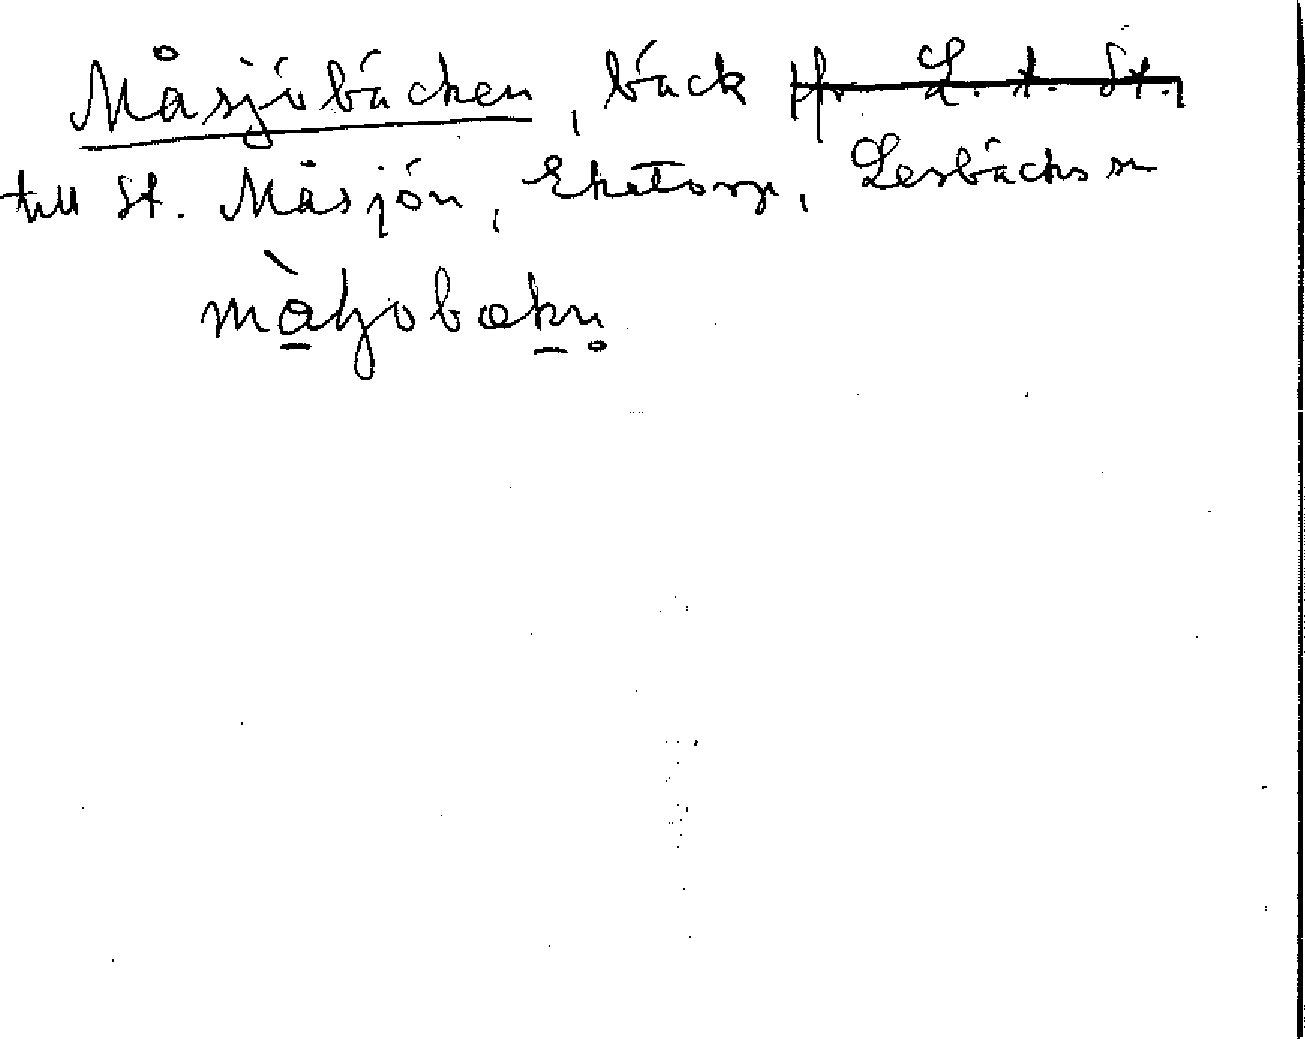 Måsjöbäcken, bäck fr. L. t. St.
till St. Måsjön, Eketorp, Lerbäcks sn